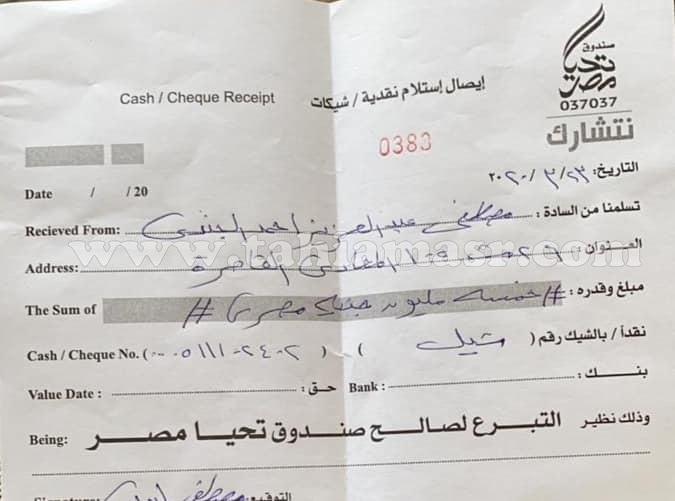 صندوق
تحيا
مصر
037037
نتشارك
Cash / Cheque Receipt إيصال إستلام نقدية / شيكات
0383
التاريخ: ٢٣/٣/٢٠٢٠
Date / / 20
تسلمنا من السادة : مصطفى عبدالعزيز احمد
Recieved From:
www.tahiamasr.com
العنوان : المعادى القاهرة
Address:
مبلغ وقدره : # خمسه مليون جنيه مصرى #
The Sum of
نقداً / بالشيك رقم ( شيك )
Cash / Cheque No. ( )
بنك : Bank :
حق : Value Date :
وذلك نظير التبرع لصالح صندوق تحيا مصر
Being:
التوقيع: مصطفى
Signature: